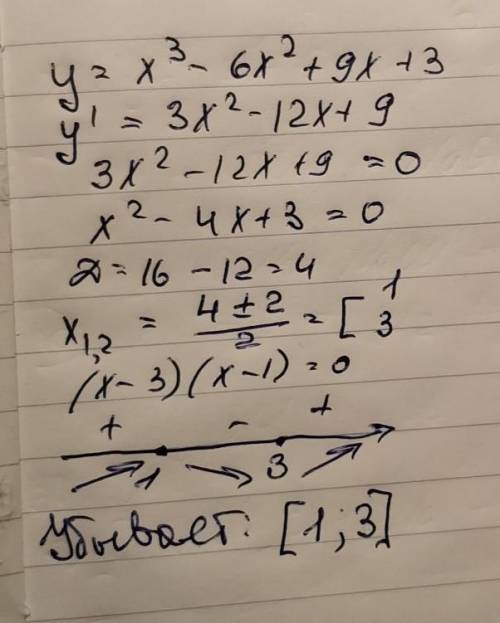 y = x³ - 6x² + 9x + 3
y' = 3x² - 12x + 9
3x² - 12x + 9 = 0
x² - 4x + 3 = 0
D = 16 - 12 = 4
x₁,₂ = (4 ± 2)/2 = [ 1 3
(x - 3)(x - 1) = 0
+ - +
1 3
Убывает: [1; 3]